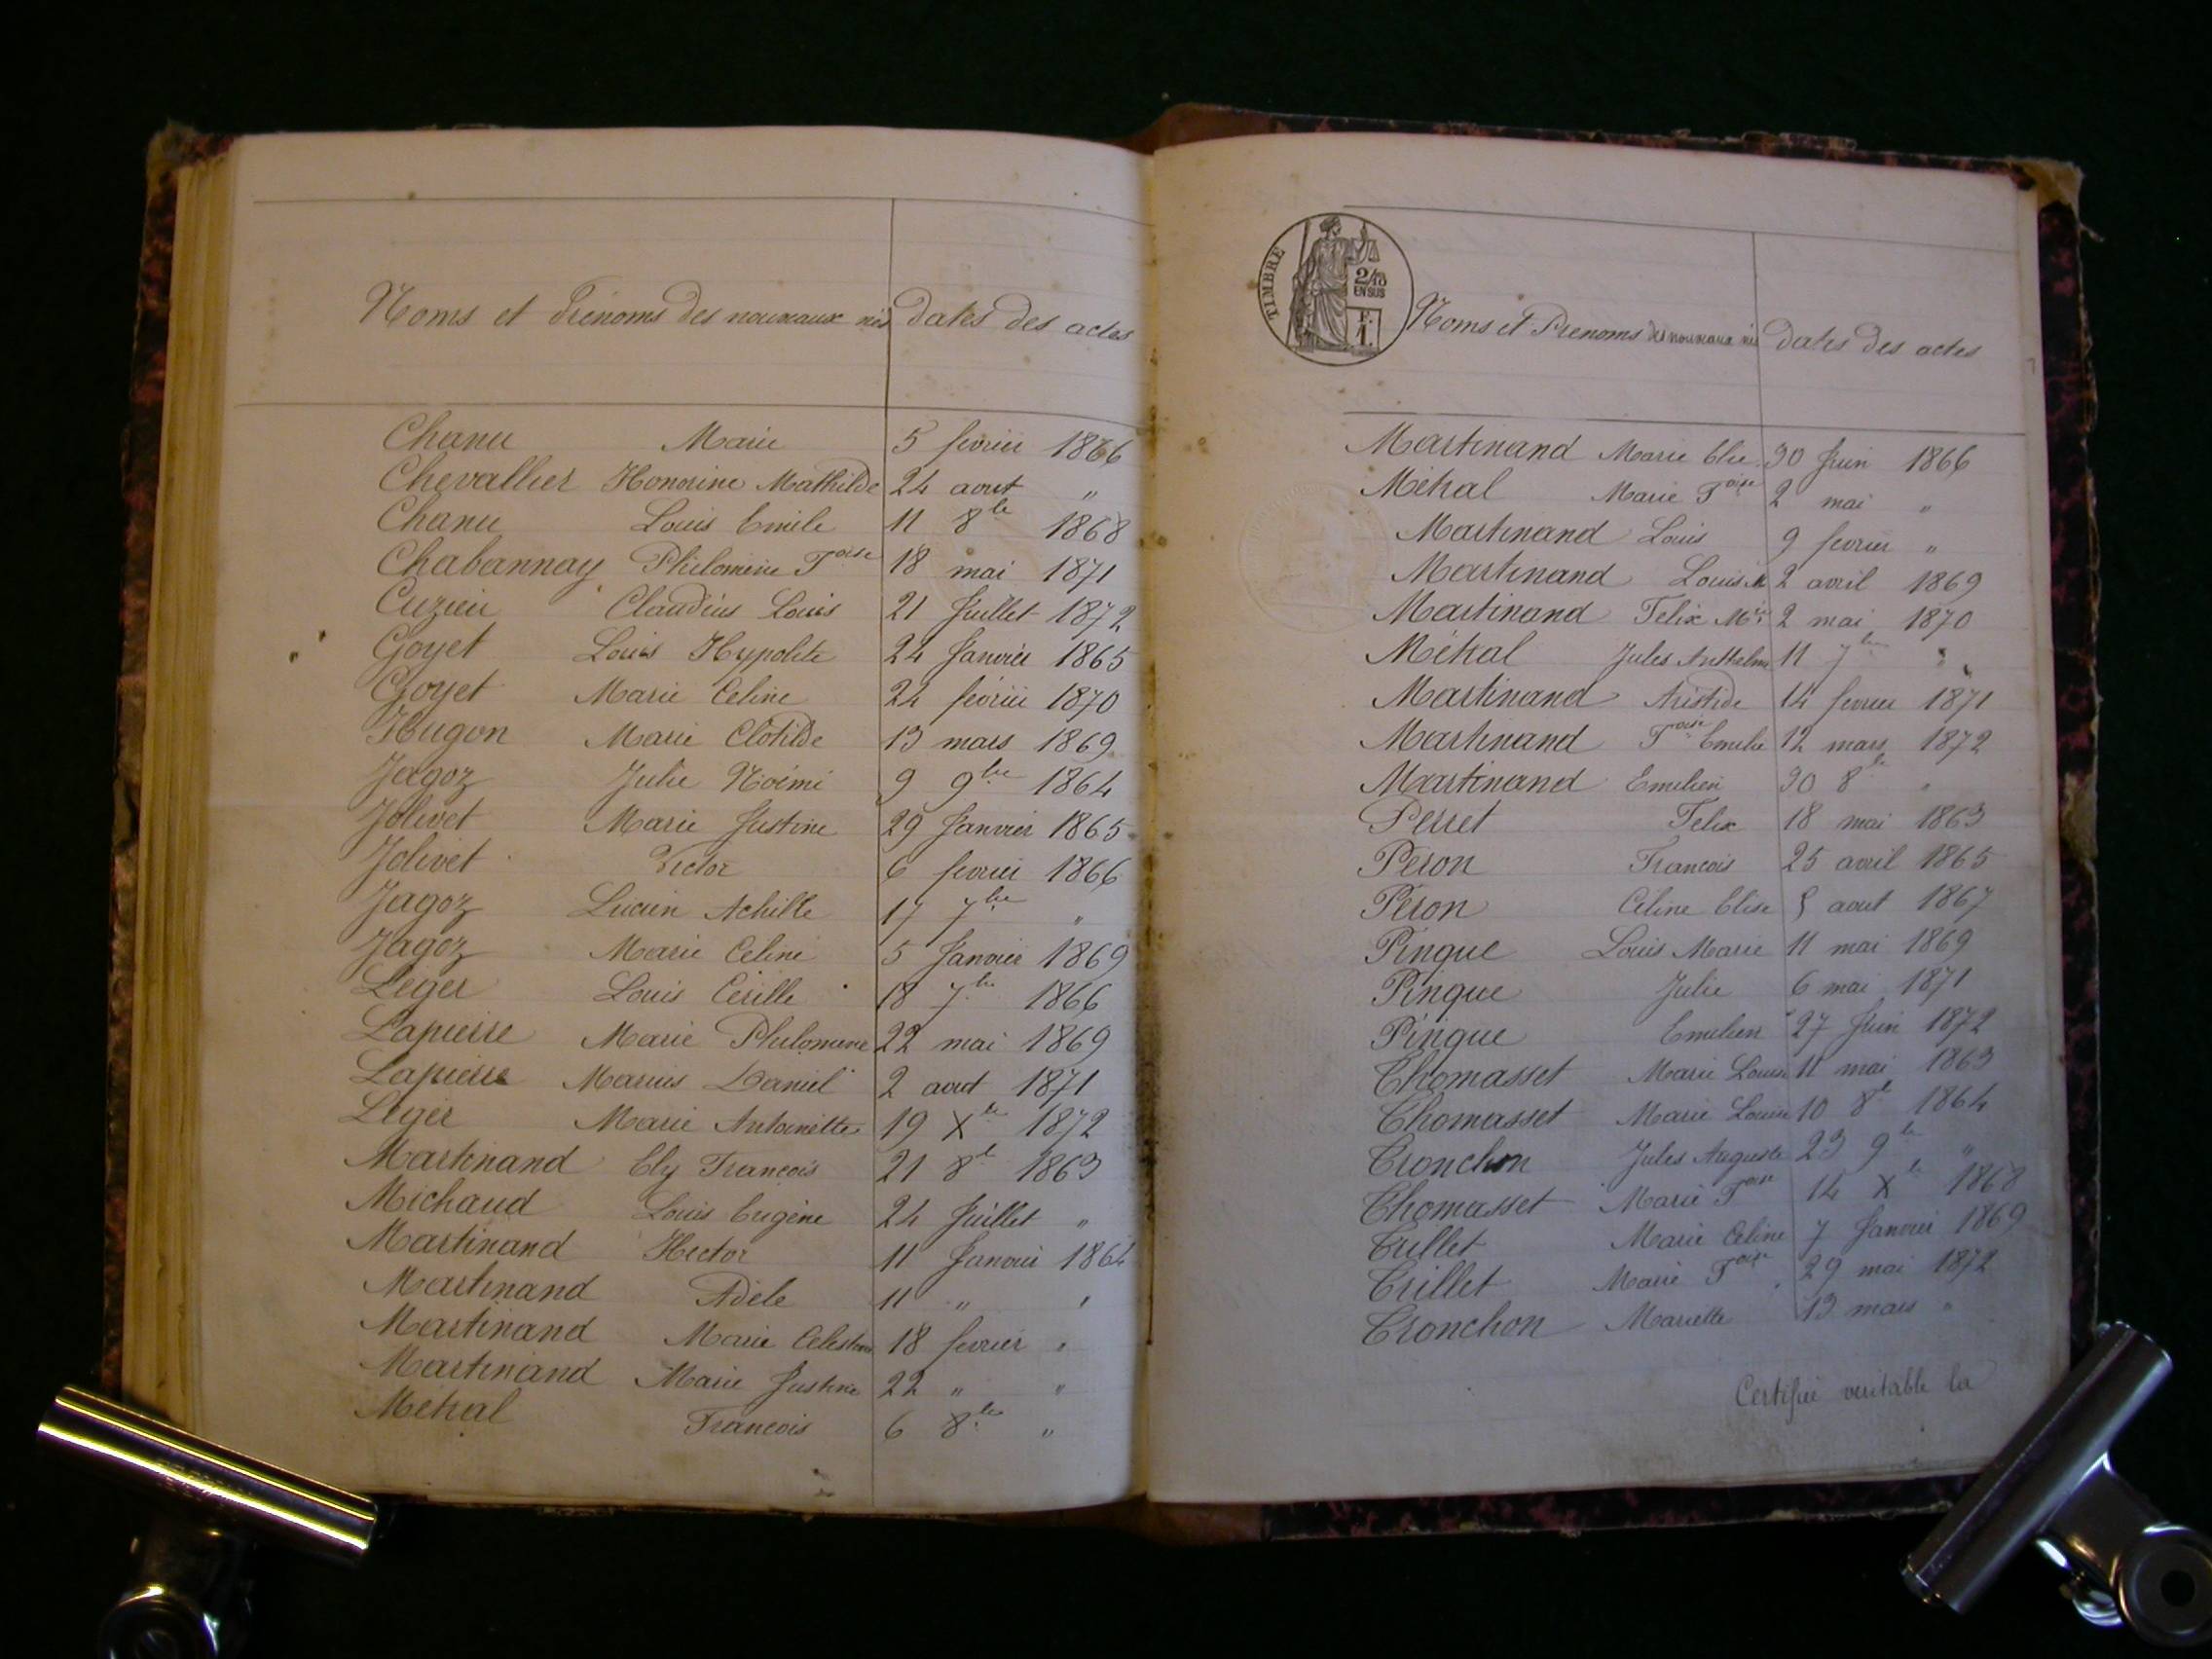 Noms et Prénoms des nouveaux nés dates des actes
Chanu Marie 5 fevrier 1866
Chevallier Honorine Mathilde 24 aout "
Chanu Louis Emile 11 8bre 1868
Chabannay Philomene Foise 18 mai 1871
Cuzieu Claudius Louis 21 Juillet 1872
Goyet Louis Hypolite 24 Janvier 1865
Goyet Marie Celine 22 février 1870
Hugon Marie Clotilde 13 mars 1869
Jagoz Julie Noémi 9 9bre 1864
Jolivet Marie Justine 29 Janvier 1865
Jolivet Victor 6 fevrier 1866
Jagoz Lucien Achille 17 7bre "
Jagoz Marie Celine 5 Janvier 1869
Leger Louis Cerille 18 7bre 1866
Lapierre Marie Philomene 22 mai 1869
Lapierre Marius Daniel 2 aout 1871
Leger Marie Antoinette 19 Xbre 1872
Martinand Ely Francois 21 8b 1863
Michaud Louis Eugène 24 Juillet "
Martinand Hector 11 Janvier 1864
Martinand Adele 11 " "
Martinand Marie Celestine 18 fevrier "
Martinand Marie Justine 22 " "
Métral Francois 6 8bre "
TIMBRE
2/10
EN SUS
F.
1.
Noms et Prenoms des nouveaux nés dates des actes
Martinand Marie Elie 30 Juin 1866
Métral Marie Foise 2 mai "
Martinand Louis 9 fevrier "
Martinand Louis M 2 avril 1869
Martinand Felix Mie 2 mai 1870
Métral Jules Anthelme 11 7bre "
Martinand Aristide 14 fevrier 1871
Martinand Foise Emelie 12 mars 1872
Martinand Emilien 30 8b "
Perret Felix 18 mai 1863
Peron Francois 25 avril 1865
Peron Celine Elise aout 1867
Pingue Louis Marie 11 mai 1869
Pingue Julie 6 mai 1871
Pingue Emilien 27 Juin 1872
Thomasset Marie Louise 11 mai 1863
Thomasset Marie Louise 10 8b 1864
Tronchon Jules Auguste 23 9b "
Thomasset Marie Foise 14 Xb 1868
Trillet Marie Celine 7 Janvier 1869
Trillet Marie Foise 29 mai 1872
Tronchon Mariette 13 mars "
Certifié veritable la